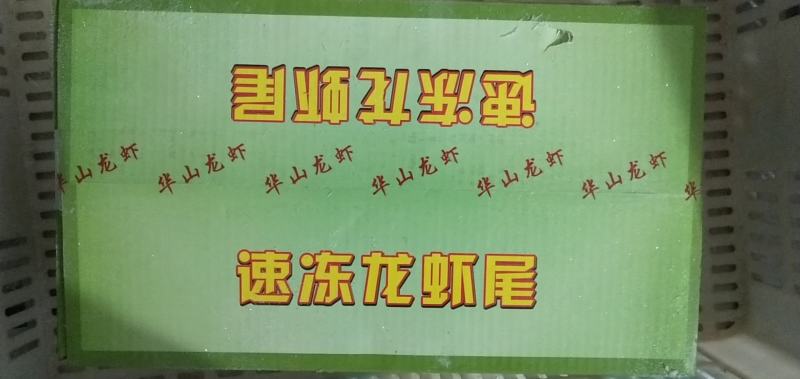 速冻龙虾尾
华山龙虾 华山龙虾 华山龙虾 华山龙虾 华山龙虾 华山龙虾 华
速冻龙虾尾